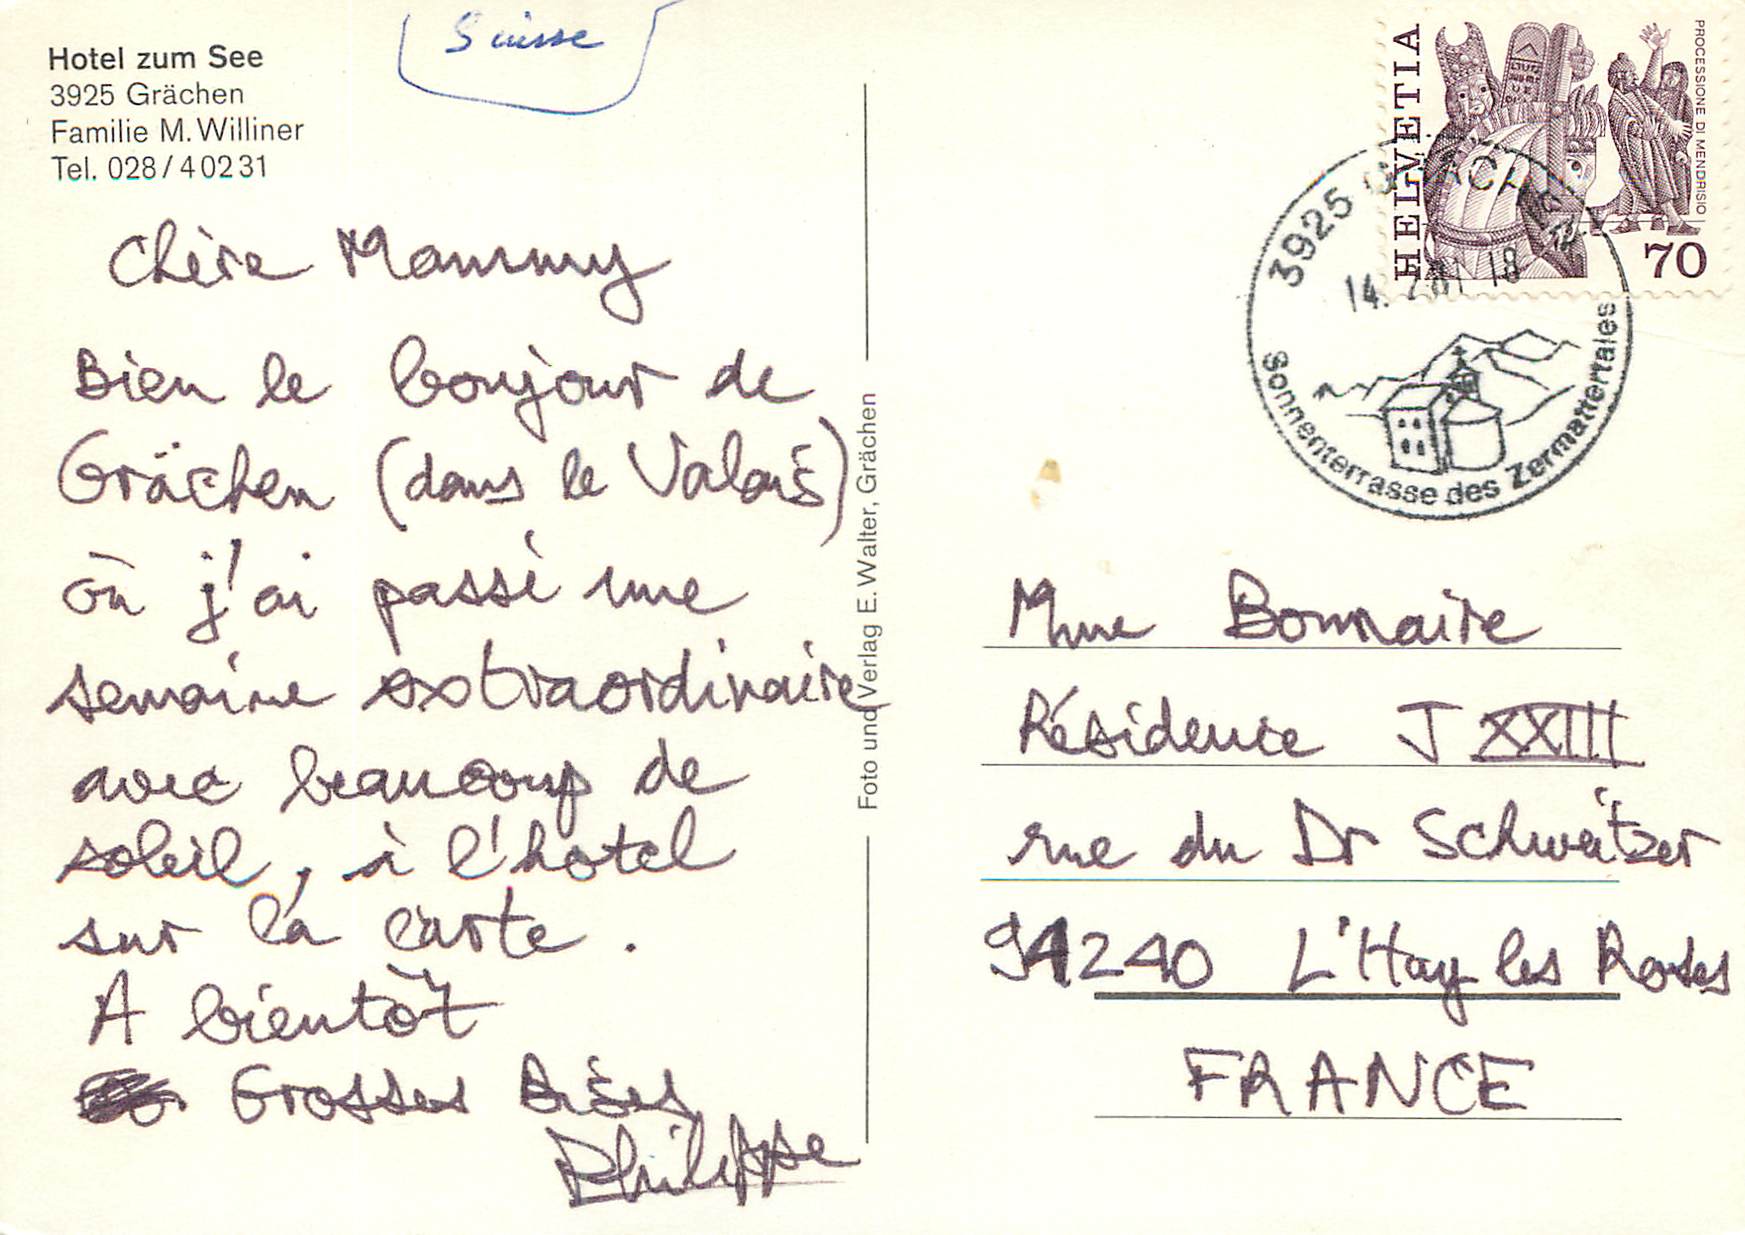 Suisse
Hotel zum See
3925 Grächen
Familie M. Williner
Tel. 028/40231
Chère Mammy
Bien le bonjour de
Grächen (dans le Valais)
où j'ai passé une
semaine extraordinaire
avec beaucoup de
soleil, à l'hotel
sur la carte.
A bientôt
Grosses Bises
Philippe
Foto und Verlag E. Walter, Grächen
HELVETIA
PROCESSIONE DI MENDRISIO
70
3925 GRÄCHEN
14. 18
Sonnenterrasse des Zermattertales
Mme Bonnaire
Résidence J XXIII
rue du Dr Schweitzer
94240 L'Hay les Roses
FRANCE